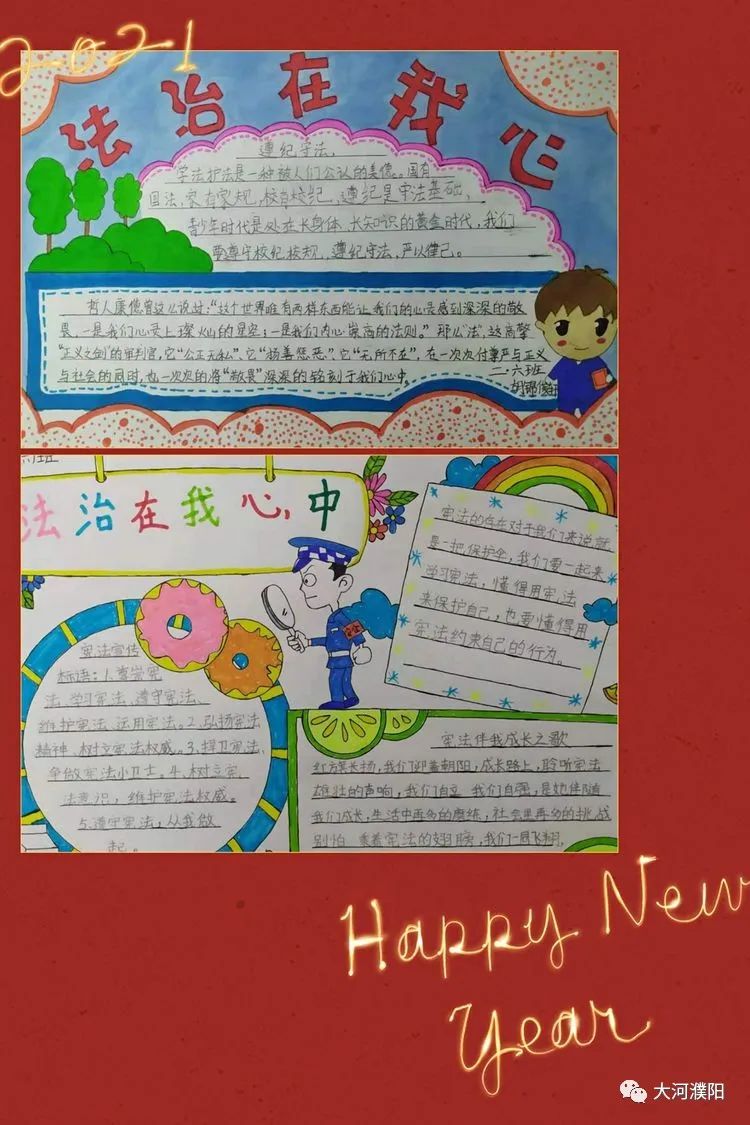 2021
法治在我心
遵纪守法
学法护法是一种被人们公认的美德。国有
国法,家有家规,校有校纪,遵纪是守法基础,
青少年时代是处在长身体、长知识的黄金时代,我们
要遵守校纪校规,遵纪守法,严以律己。
哲人康德曾这么说过:“这个世界唯有两样东西能让我们的心灵感到深深的敬
畏,一是我们心灵上璨灿的星空;一是我们内心崇高的法则。”那么“法”,这高擎
“正义之剑”的审判官,它“公正无私”、它“扬善惩恶”、它“无所不在”,在一次次付尊严与正义
与社会的同时,也一次次的将“敬畏”深深的铭刻于我们心中。
二·六班
六班
法治在我心中
宪法的存在对于我们来说就
是一把保护伞,我们要一起来
学习宪法,懂得用宪法
来保护自己,也要懂得用
宪法约束自己的行为。
宪法宣传
标语:1.尊崇宪
法、学习宪法、遵守宪法、
维护宪法、运用宪法。2.弘扬宪法
精神、树立宪法权威。3.捍卫宪法、
争做宪法小卫士。4.树立宪
法意识,维护宪法权威。
5.遵守宪法,从我做
起。
宪法伴我成长之歌
红方旗长扬,我们迎着朝阳,成长路上,聆听宪法
雄壮的声响,我们自立 我们自强,是她伴随
我们成长,生活中再多的磨练,社会里再多的挑战
别怕 乘着宪法的翅膀,我们一同飞翔,
Happy New
Year
大河濮阳